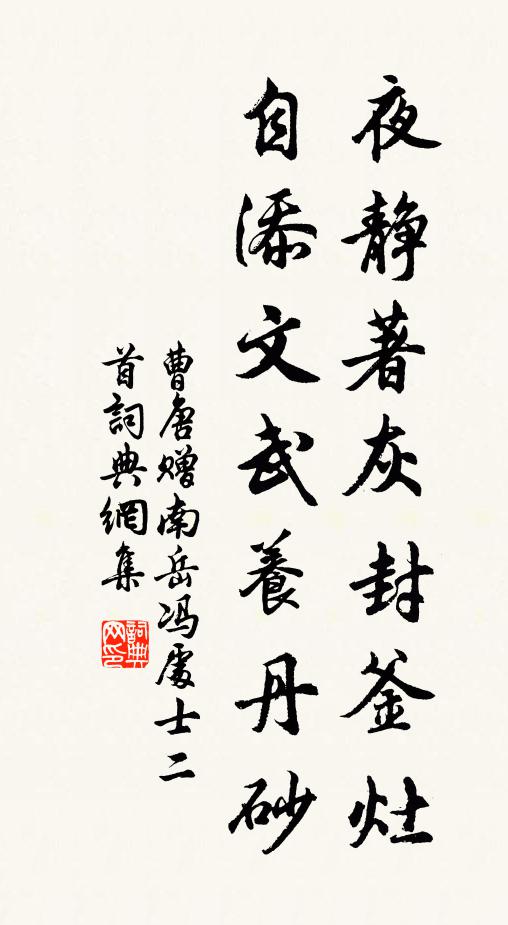 夜静著灰封釜灶
自添文武養丹砂
曹唐赠南岳冯處士二
首詞典網集
詞典网印